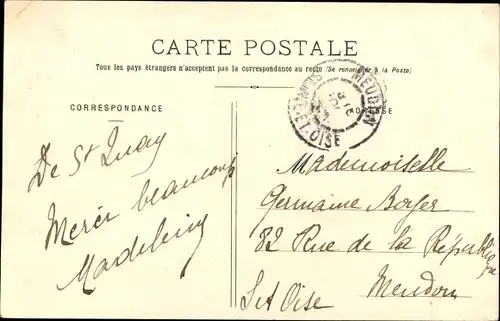 CARTE POSTALE
Tous les pays étrangers n'acceptent pas la correspondance au recto (Se renseigner à la Poste)
CORRESPONDANCE
ADRESSE
MEUDON
ET-OISE
De St Quay
Merci beaucoup
Madeleine
Mademoiselle
Germaine
82 Rue de la République
Meudon
S et Oise